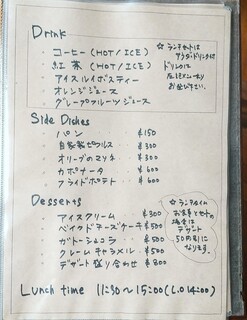 Drink
・コーヒー (HOT/ICE)
・紅茶 (HOT/ICE)
・アイスルイボスティー
・オレンジジュース
・グレープフルーツジュース
☆ ランチセットは
サラダ・ドリンク付
ドリンクは
左記メニューより
お選び下さい。
Side Dishes
・パン ¥150
・自家製ピクルス ¥300
・オリーブのマリネ ¥300
・カポナータ ¥600
・フライドポテト ¥600
Desserts
・アイスクリーム ¥300
・ベイクドチーズケーキ ¥500
・ガトーショコラ ¥500
・クレームキャラメル ¥500
・デザート盛り合わせ ¥800
☆ランチタイム
お食事とセットの
場合は
デザート
50円引に
なります。
Lunch time 11:30~15:00 (L.O 14:00)